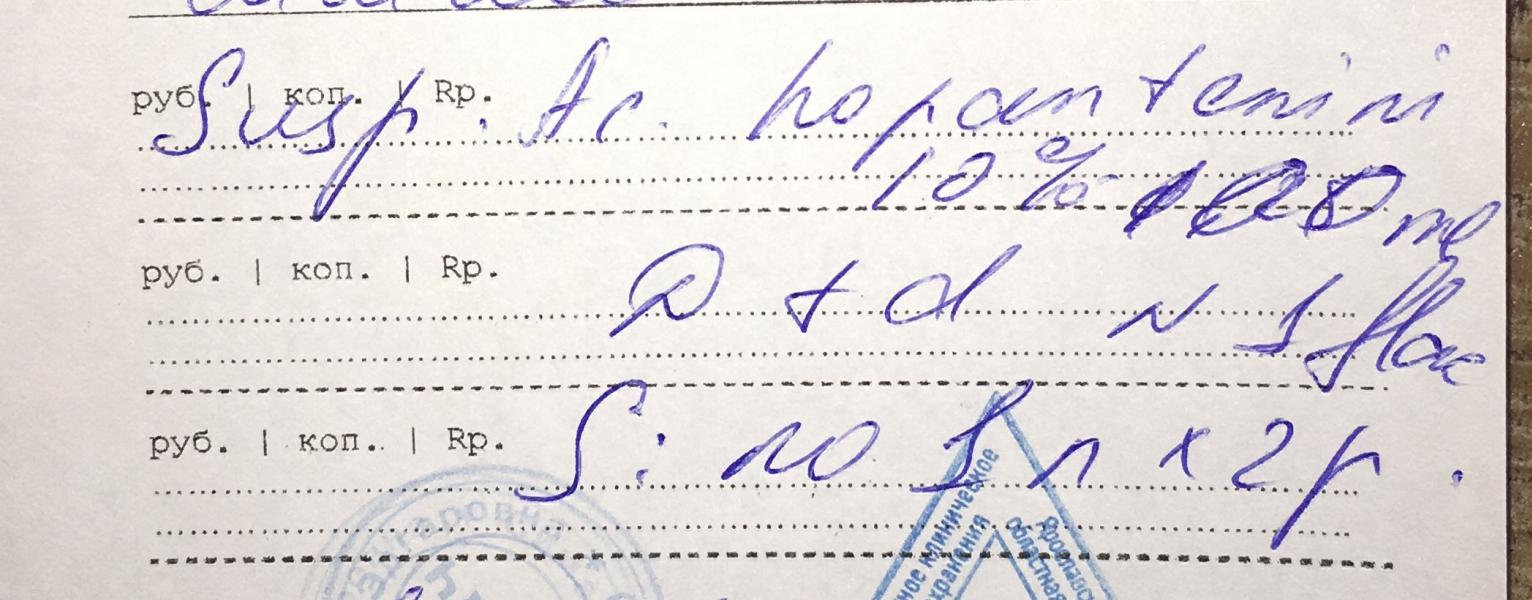 руб. | коп. | Rp.
Susp. Ac. hopantenini
10% 100 ml
руб. | коп. | Rp.
D t d N 1 flac
руб. | коп. | Rp.
S: по 1 л x 2 р.
клиническое
областная